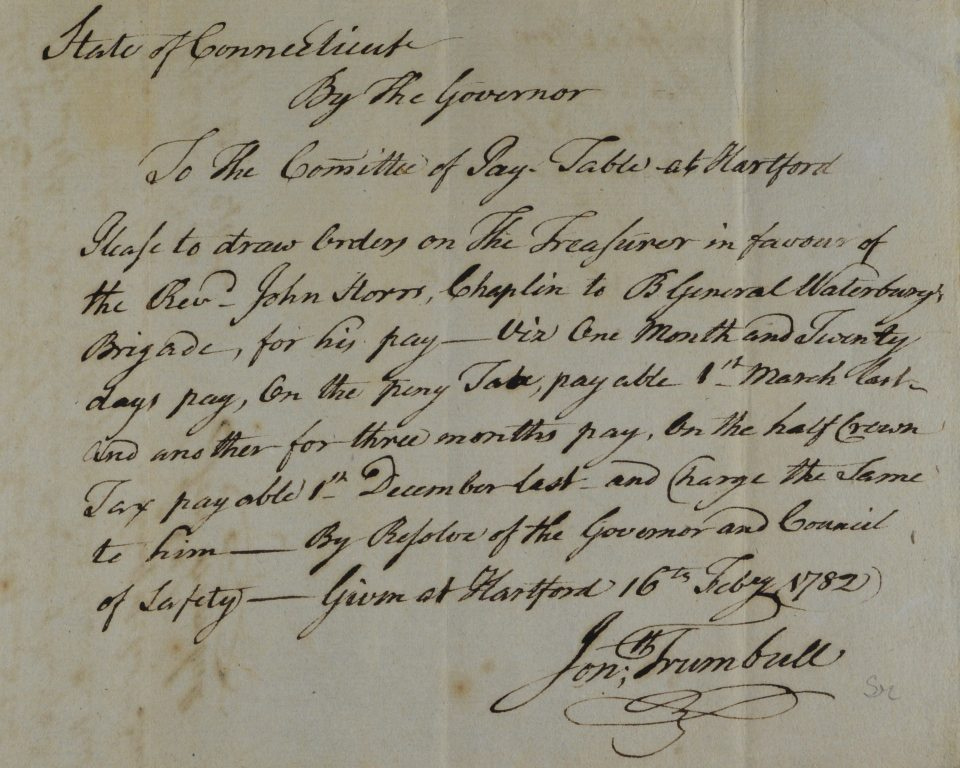 State of Connecticut
By the Governor
To the Com̄ittee of Pay-Table at Hartford
Please to draw Orders on the Treasurer in favour of
the Revd. John Storrs, Chaplin to B General Waterburys
Brigade, for his pay — Viz One Month and Twenty
days pay, On the peny Tax, payable 1st March last-
and another for three months pay, On the half Crown
Tax payable 1st December last - and Charge the Same
to him — By Resolve of the Governor and Council
of Safety — Given at Hartford 16th Feby 1782
Jonth; Trumbull